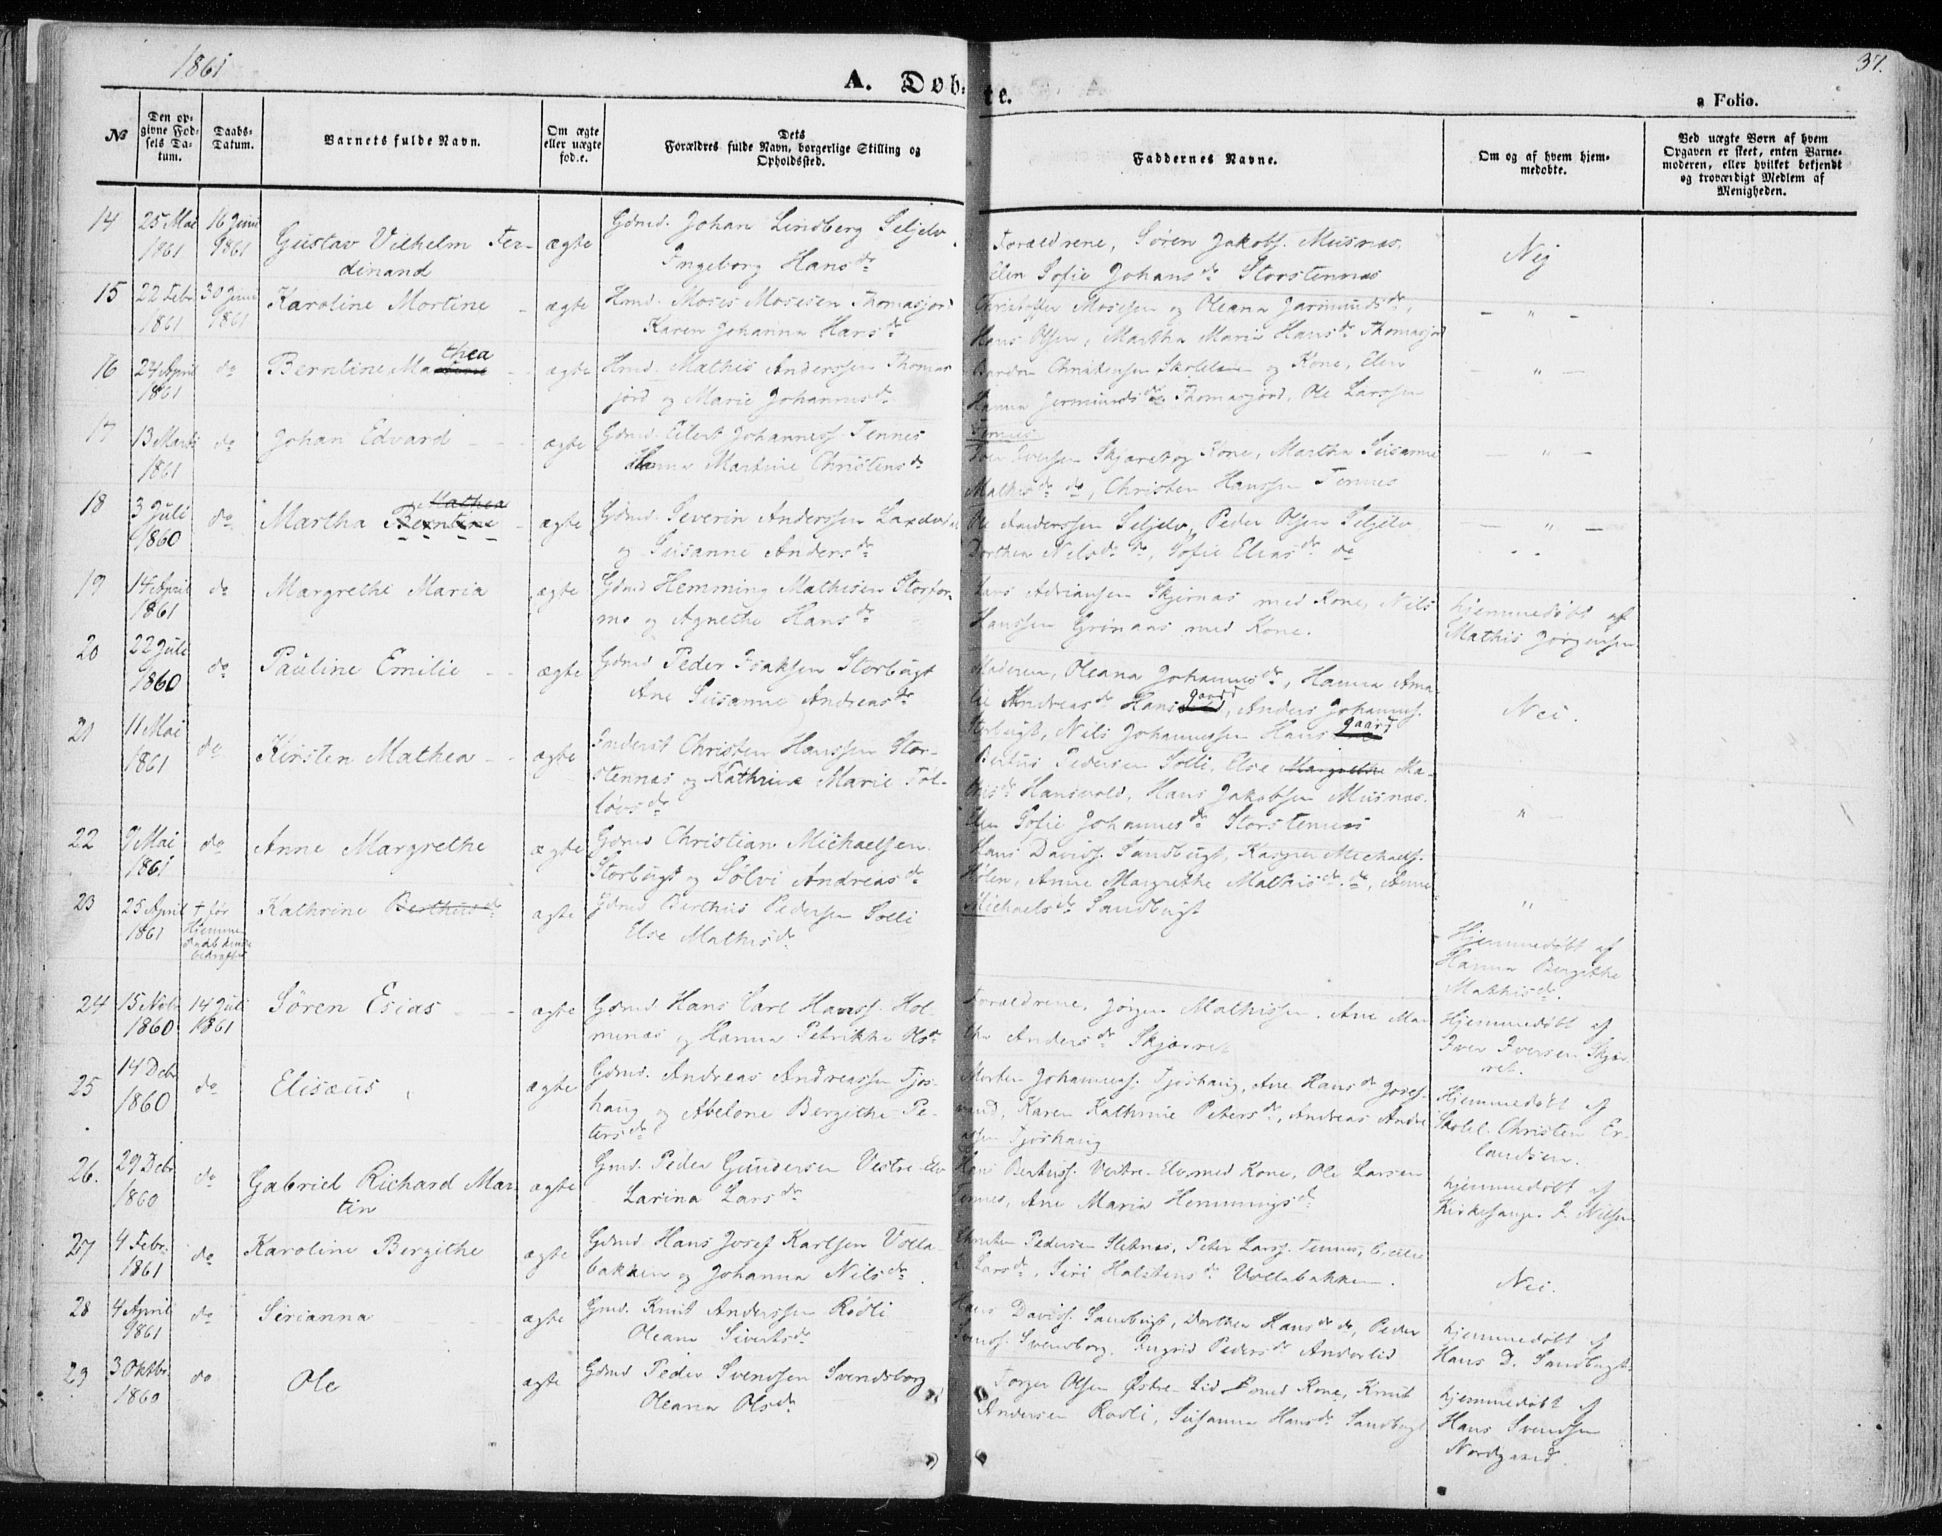 1861
37.
A. Døb-
te.
a Folio.
No
Den op-
givne Fød-
sels Da-
tum.
Daabs-
Datum.
Barnets fulde Navn.
Om ægte
eller uægte
fød.e.
Dets
Forældres fulde Navn, borgerlige Stilling og
Opholdssted.
Faddernes Navne.
Om og af hvem hjem-
medøbte.
Ved uægte Børn af hvem
Opgaven er skeet, enten Barne-
moderen, eller hvilket bekjendt
og troværdigt Medlem af
Menigheden.
14
25 Mai
1861
16 Juni
1861
Gustav Vilhelm Fer-
dinand
ægte
Gdmd. Johan Lindberg Seljelv
Ingeborg Hansdr
Forældrene, Søren Jakobs. Musnæs,
Elen Sofie Johansdr Storstennæs
Nej
15
22 Febr.
1861
30 Juni
1861
Karoline Mortine
ægte
Hmd. Moses Mosesen Thomasjord
Karen Johanna Hansdr
Christoffer Mosesen og Oleana Jarmundsdr,
Hans Olsen, Martha Maria Hansdr Thomasjord
- " -
16
24 April
1861
do
Berntine Mathea
ægte
Hmd. Mathis Anderssen Thomas
jord og Marie Johannesdr
Christensen og Kone, Elen
Hanna Jermundsdr Thomasjord, Ole Larssen
Tennes
- " -
17
13 Marts
1861
do
Johan Edvard
ægte
Gdmd. Eilert Johanness. Tennes
Hanna Martine Christensdr
Iver Iversen Skjæret og Kone, Martha Susanne
Mathisdr do, Christen Hanssen Tennes
- " -
18
3 Juli
1860
do
Martha Berntine
Mathea
ægte
Gdmd. Severin Anderssen
og Susanne Andersdr
Ole Anderssen Seljelv, Peder Olsen Seljelv
Dorthea Nilsdr do, Sofie Eliasdr do
- " -
19
14 April
1861
do
Margrethe Maria
ægte
Gdmd Hemming Mathisen Storfor-
mo og Agnethe Hansdr
Lars Adriansen Skjernæs med Kone, Nils
Hanssen Grønaas med Kone.
hjemmedøbt af
Mathis Jørgensen
20
22 Juli
1860
do
Pauline Emilie
ægte
Gdmd Peder Isaksen Storbugt
Ane Susanne Andreasdr
Moderen, Oleana Johannesdr, Hanna Ama
lie Andreasdr Hansgaard, Anders Johanness.
Storbugt, Nils Johannessen Hansgaard
Nei.
21
11 Mai
1861
do
Kirsten Mathea
ægte
Inderst Christen Hanssen Stor-
stennæs og Kathrine Marie Tøl-
løvsdr
Bertus Pedersen Solli, Else Margrethe Ma-
thisdr Hansvold, Hans Jakobsen Musnæs.
Elen Sofie Johannesdr Storstennes
"
22
9 Mai
1861
do
Anne Margrethe
ægte
Gdmd Christian Michaelsen
Storbugt og Sølvi Andreasdr
Hans Davids. Sandbugt, Kasper Michaels.
Holen, Anne Margrethe Mathisdr do, Anne
Michaelsdr Sandbugt
"
23
25 April
1861
† før
Hjemme
daab
Kathrine Berthusdr
ægte
Gdmd Berthus Pedersen Solli
Else Mathisdr
Hjemmedøbt af
Hanna Bergithe
Mathisdr.
24
15 Nvbr
1860
14 Juli
1861
Søren Esias
ægte
Gdmd Hans Carl Hanss. Hol-
menæs og Hanna Petrikke Olsdr
Forældrene, Jørgen Mathissen, Ane Mar
the Andersdr Skjæret
Hjemmedøbt af
Iver Iversen Skjæ-
ret.
25
14 Debr
1860
do
Elisæus
ægte
Gdmd. Andreas Andreassen Fjos-
haug og Abelone Bergithe Pe-
tersdr
Morten Johanness. Fjoshaug, Ane Hansdr Josef-
vand, Karen Kathrine Petersdr, Andreas Andre
assen Fjoshaug
Hjemmedøbt af
Skolel. Christen Er-
landsen.
26.
29 Debr
1860
do
Gabriel Richard Mar-
tin
ægte
Gmd. Peder Gundersen Vestre-Elv
Larina Larsdr
Hans Bertuss. Vestre-Elv med Kone, Ole Larsen
Tennes, Ane Maria Hemmingsdr
hjemmedøbt af
Kirkesanger P. Nilsen
27
4 Febr.
1861
do
Karoline Bergithe
ægte
Gdmd Hans Josef Karlsen Volla-
bakken og Johanna Nilsdr.
Christen Pedersen Sletnæs, Peter Larss. Tennes, Cecilie
Larsdr, Siri Halstensdr Vollabakken.
Nei.
28
4 April
1861
do
Sirianna
ægte
Gmd. Knut Anderssen Rødli
Oleana Sivertsdr
Hans Davids. Sandbugt, Dorthea Hansdr do, Peder
Svends. Svensborg, Ingrid Pedersdr Anderlid
hjemmedøbt af
Hans D. Sandbugt
29
3 Oktbr
1860
do
Ole
ægte
Gdmd Peder Svendsen Svendsborg
Oleana Olsdr
Torger Olsen Østre Lid med Kone, Knut
Andersen Rødli, Susanna Hansdr Sandbugt
hjemmedøbt af
Hans Svendsen
Nordgaard.